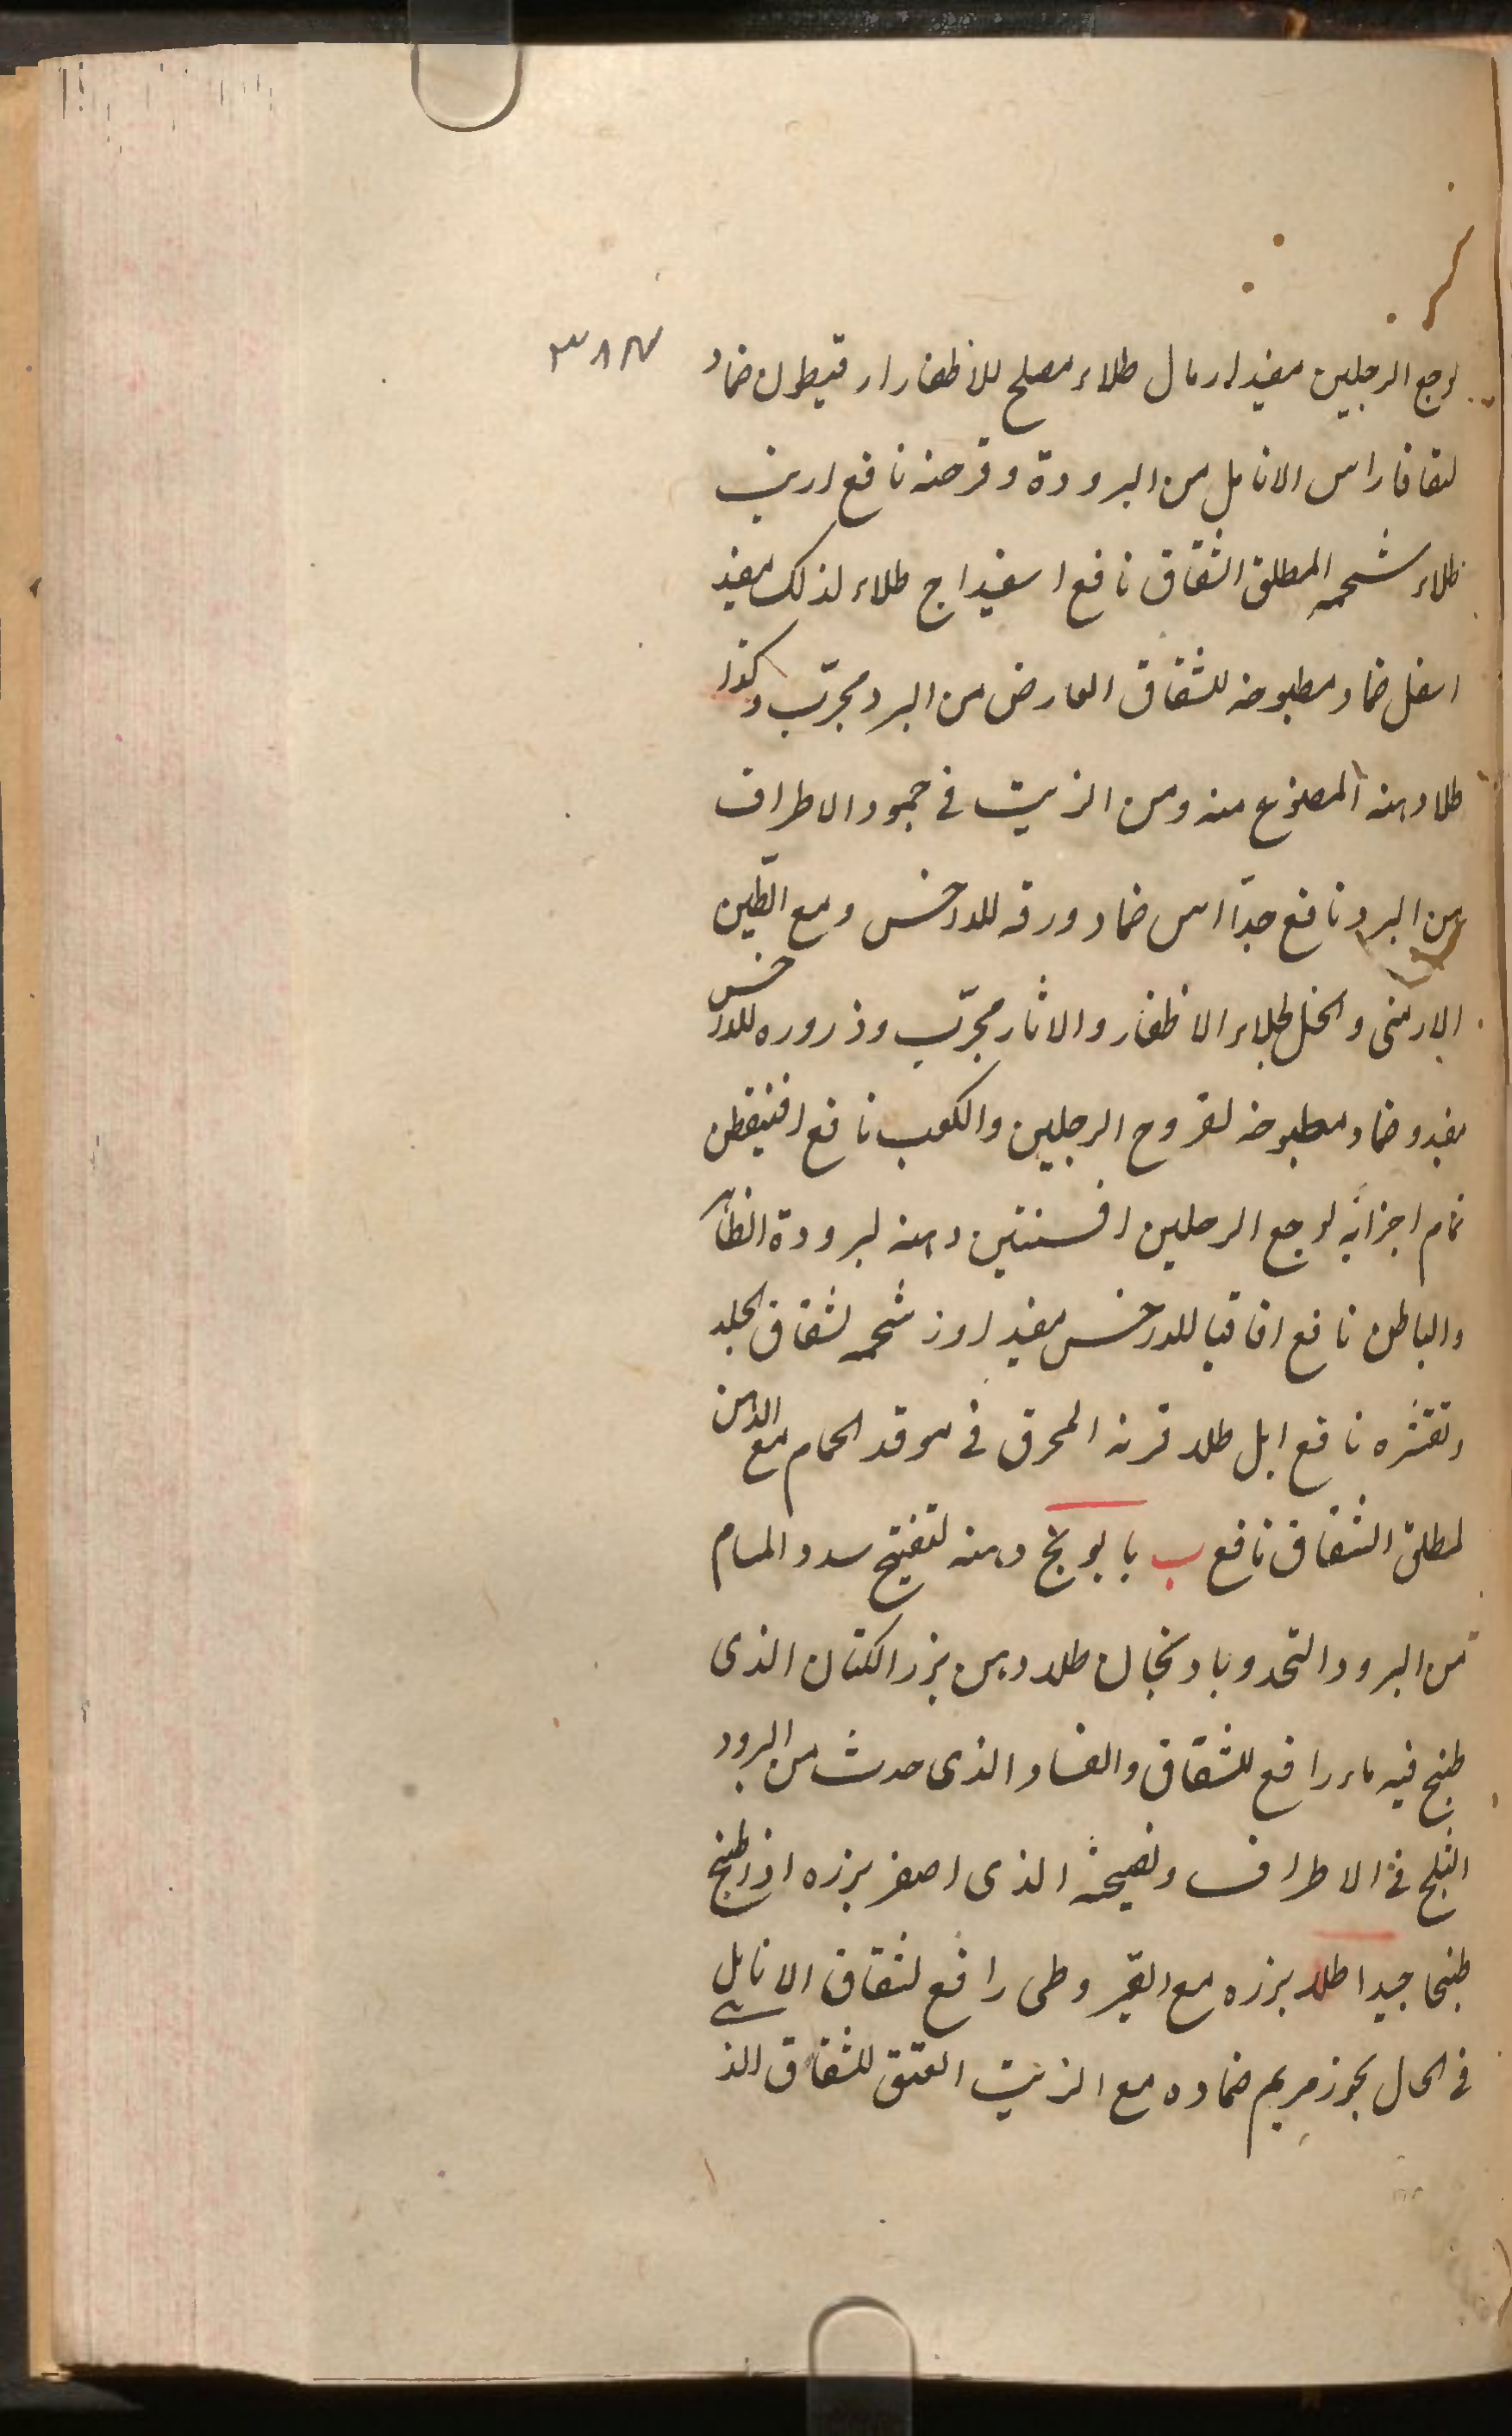 ٣٨٢
لوجع الرجلين مفيد ارمال طلاء مصلح للاظفار ارقيطون ضماد
راس الانامل من البرودة وقرحته نافع ارنب
طلاء شحمه المطلق الشقاق نافع اسفيداج طلاء لذلك مفيد
اسفل ضماد مطبوخه للشقاق العارض من البرد مجرّب وكذا
طلا دهنه المصنوع منه ومن الزيت فى جمود الاطراف
من البرد نافع جدّا اس ضماد ورقه للدرخس ومع الطّين
الارمنى والخل لجلاء الاظفار والاثار مجرّب وذروره للدرخس
مفيد وضماد مطبوخه لقروح الرجلين والكعب نافع افنيقطن
تمام اجزائه لوجع الرجلين افسنتين دهنه لبرودة الظاهر
والباطن نافع اقاقيا للدرخس مفيد اوز شحمه لشقاق الجلد
وتقشّره نافع ابل طلاء قرنه المحرق فى موقد الحمام مع الدهن
لمطلق الشقاق نافع ب بابونج دهنه لتفتيح سدد المسام
من البرود التحد وبادنجان طلاء دهن بزر الكتان الذى
طبخ فيه ماء رافع للشقاق والفساد الذى حدث من البرود
الثلج فى الاطراف ونضيجه الذى اصفر بزره اذا طبخ
طبخا جيدا طلاء بزره مع القيروطى رافع لشقاق الانامل
فى الحال بخور مريم ضماده مع الزيت العتق للشقاق الذى